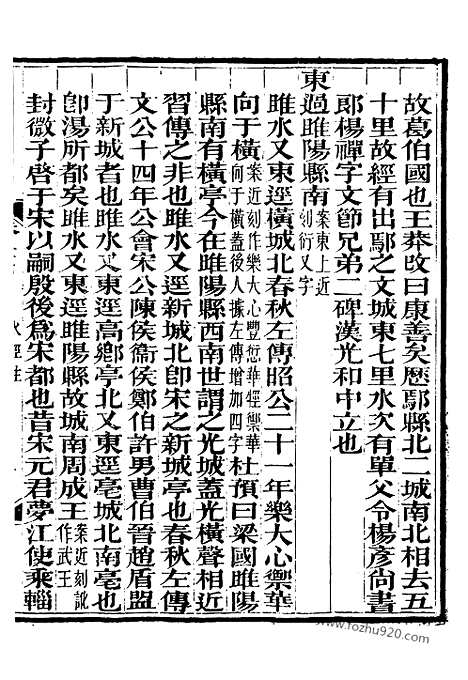 故葛伯國也王莽改曰康善矣歷鄢縣北二城南北相去五
十里故經有出鄢之文城東七里水次有單父令楊彥尚書
郎楊禪字文節兄弟二碑漢光和中立也
東過睢陽縣南案東上近刻衍又字
睢水又東逕橫城北春秋左傳昭公二十一年樂大心禦華
向于橫案近刻作樂大心豐愆華牼禦華向于橫蓋後人據左傳增加四字杜預曰梁國睢陽
縣南有橫亭今在睢陽縣西南世謂之光城蓋光橫聲相近
習傳之非也睢水又逕新城北卽宋之新城亭也春秋左傳
文公十四年公會宋公陳侯衞侯鄭伯許男曹伯晉趙盾盟
于新城者也睢水又東逕高鄉亭北又東逕亳城北南亳也
卽湯所都矣睢水又東逕睢陽縣故城南周成王案近刻訛作武王
封微子啓于宋以嗣殷後爲宋都也昔宋元君夢江使乘輜
www.fozhu920.com